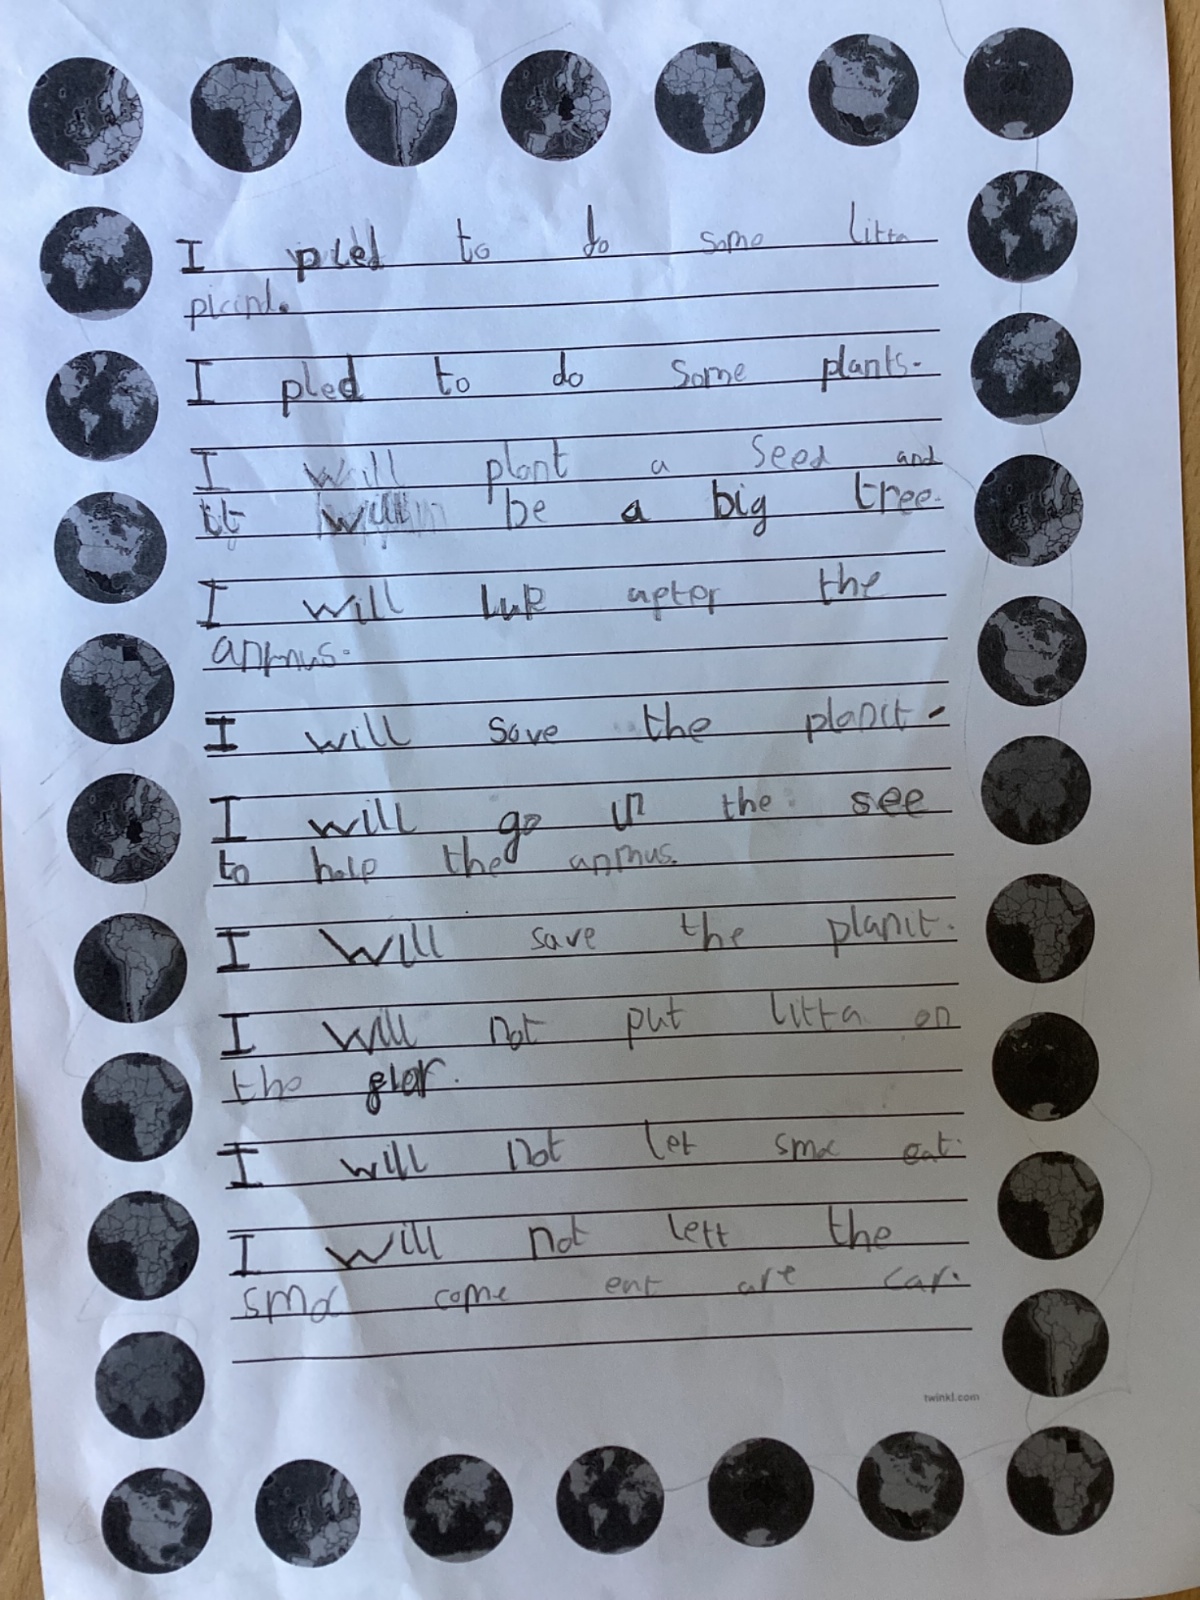 I pled to do some litta
picind.
I pled to do some plants.
I will plant a seed and
it will be a big tree.
I will luk after the
anmus.
I will save the planit.
I will go in the see
to help the anmus.
I will save the planit.
I will not put litta on
the glor.
I will not let smoc eat.
I will not lett the
smoc come eat are car.
twinkl.com